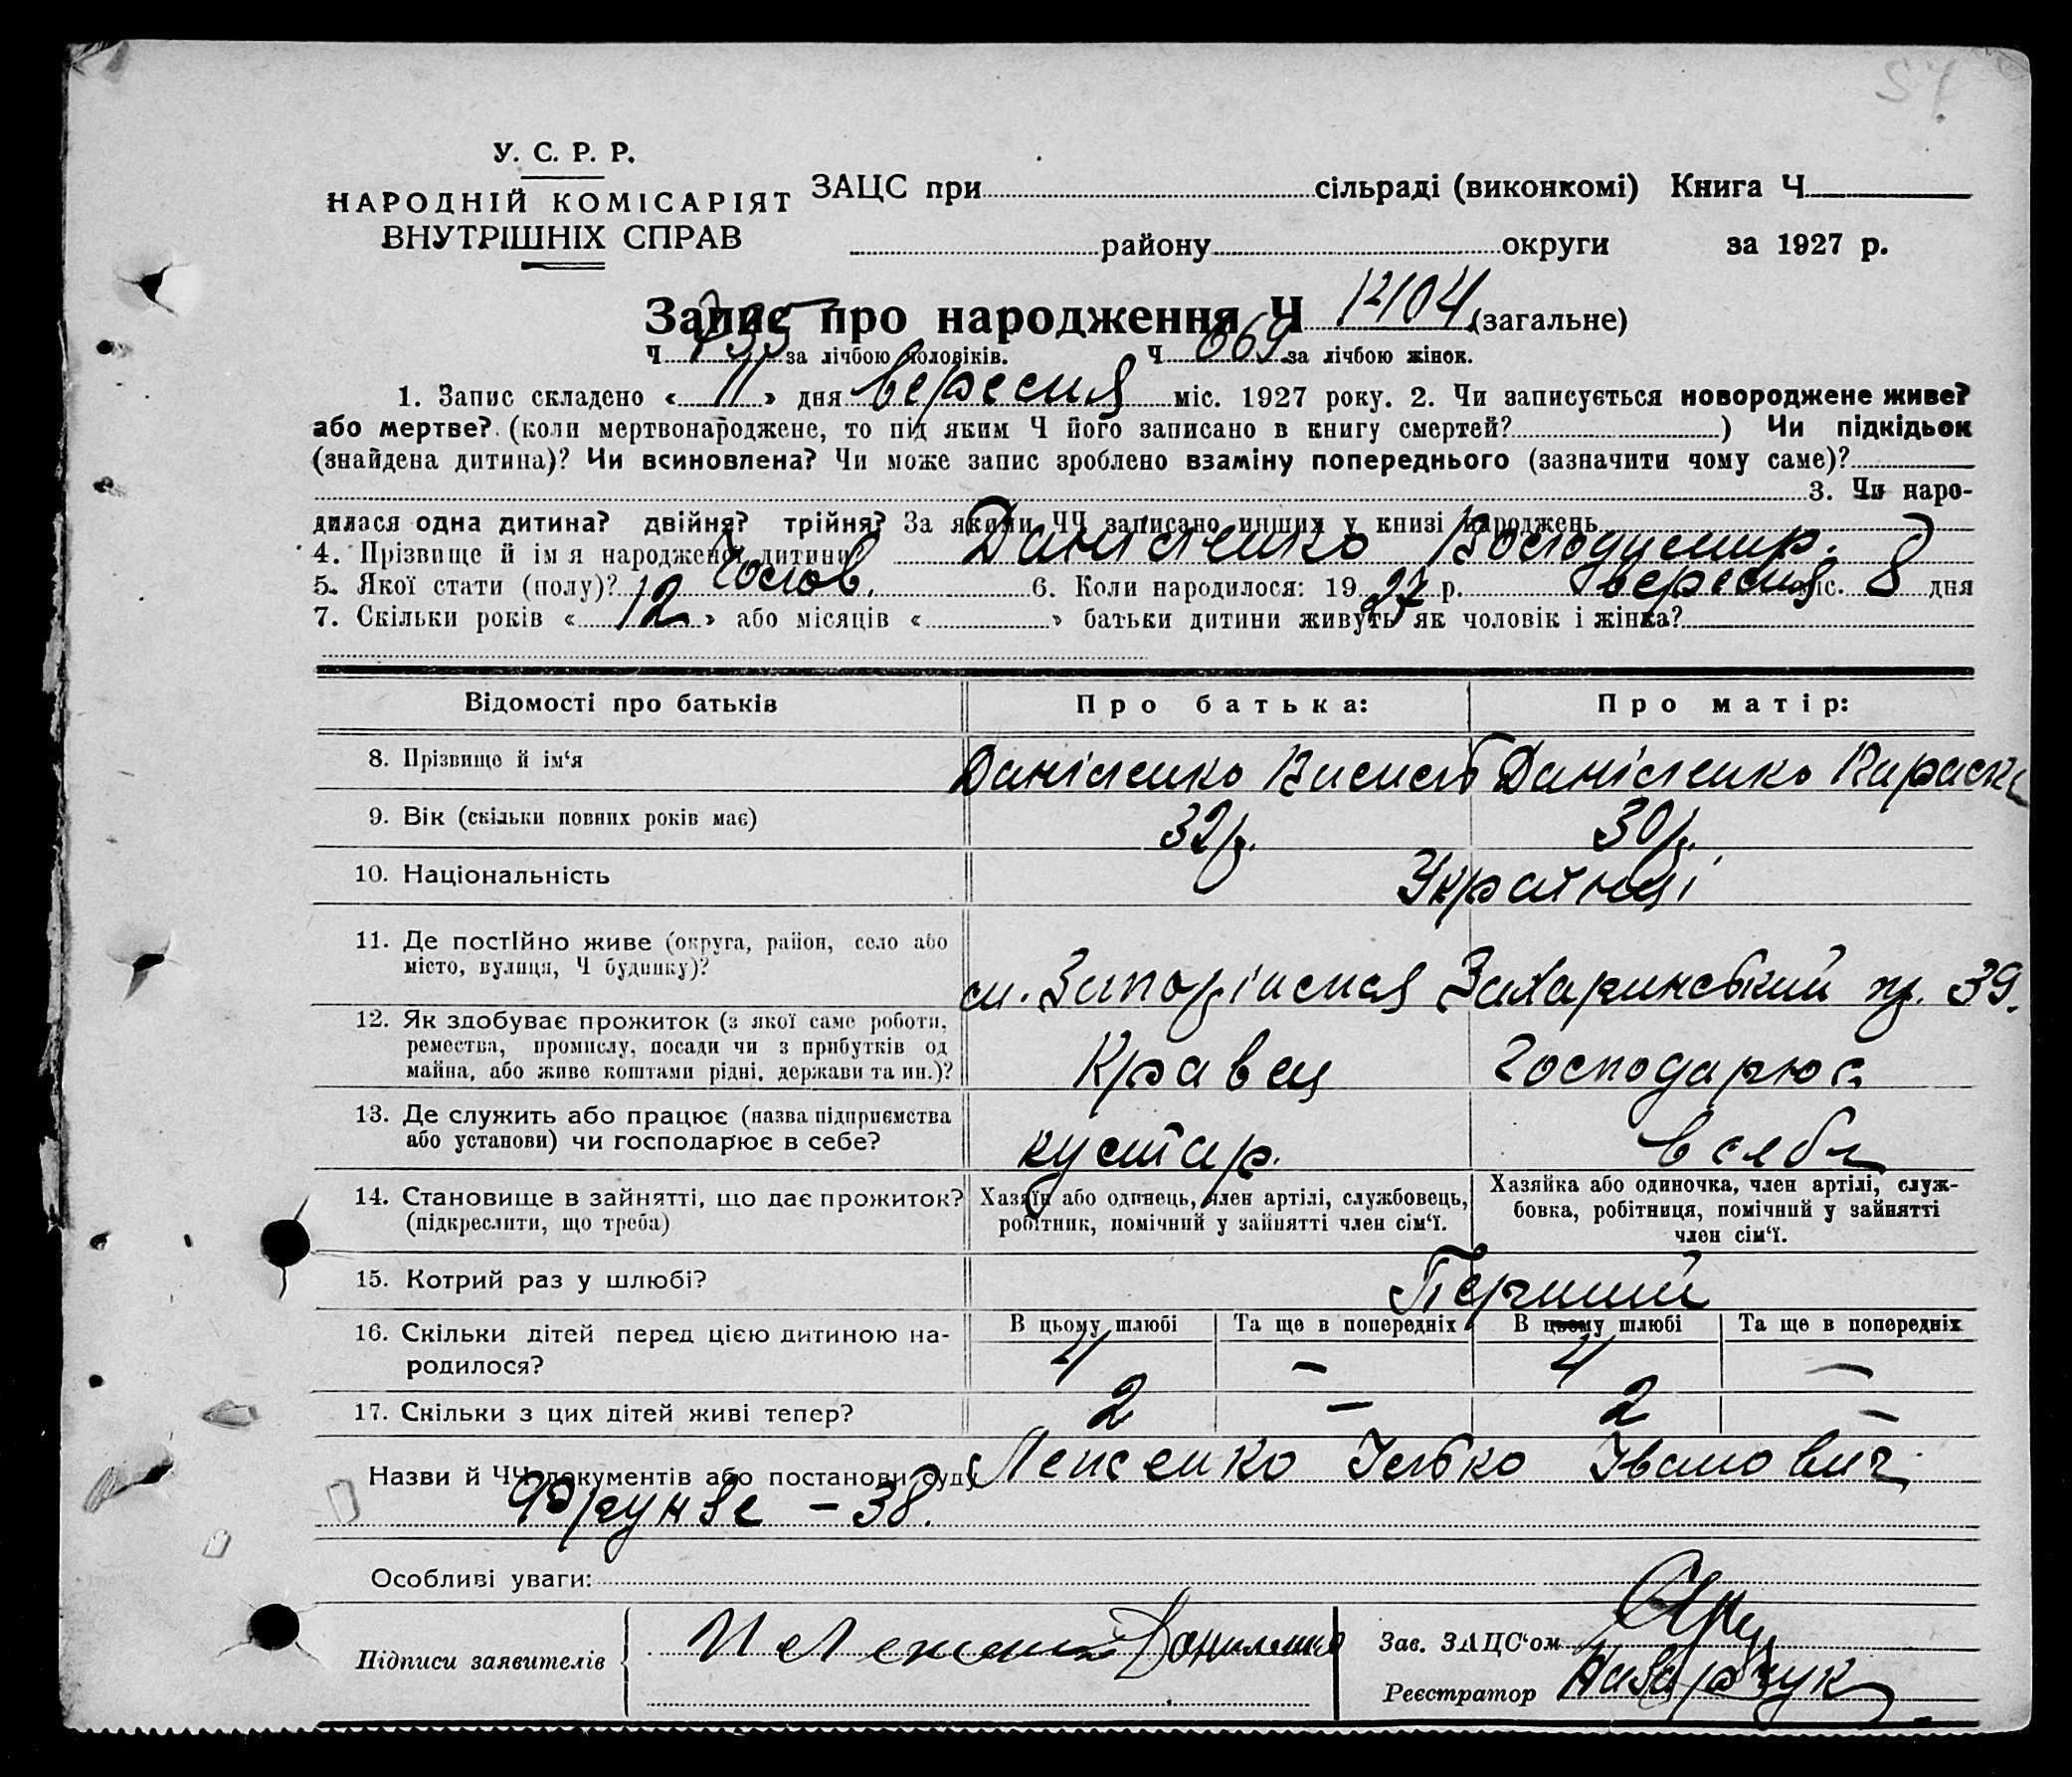 У. С. Р. Р.
НАРОДНІЙ КОМІСАРІЯТ
ВНУТРІШНІХ СПРАВ
ЗАЦС при сільраді (виконкомі) Книга Ч
району округи за 1927 р.
Запис про народження Ч 1404 (загальне)
Ч 735 за лічбою чоловіків. Ч 669 за лічбою жінок.
1. Запис складено « 11 » дня вересня міс. 1927 року. 2. Чи записується новороджене живе?
або мертве? (коли мертвонароджене, то під яким Ч його записано в книгу смертей? ) Чи підкідьок
(знайдена дитина)? Чи всиновлена? Чи може запис зроблено взаміну попереднього (зазначити чому саме)?
3. Чи наро-
дилася одна дитина? двійня? трійня? За якими ЧЧ записано инших у книзі народжень
4. Прізвище й ім я народженої дитини Даніленко Володимир.
5. Якої стати (полу)? Чолов. 6. Коли народилося: 19 27 р. вересня міс. 8 дня
7. Скільки років « 12 » або місяців « » батьки дитини живуть як чоловік і жінка?
Відомості про батьків Про батька: Про матір:
8. Прізвище й ім‘я Даніленко Даніленко Параска
9. Вік (скільки повних років має) 32 р. 30 р.
10. Національність Українці
11. Де постійно живе (округа, район, село або
місто, вулиця, Ч будинку)? Захаринський 39.
12. Як здобуває прожиток (з якої саме роботи,
ремества, промислу, посади чи з прибутків од
майна, або живе коштами рідні, держави та ин.)? Кравец Господарює
13. Де служить або працює (назва підприємства
або установи) чи господарює в себе? кустар. в себе
14. Становище в зайнятті, що дає прожиток?
(підкреслити, що треба)
Хазяїн або одинець, член артілі, службовець,
робітник, помічний у зайнятті член сім‘ї.
Хазяйка або одиночка, член артілі, служ-
бовка, робітниця, помічний у зайнятті
член сім‘ї.
15. Котрий раз у шлюбі? Перший
В цьому шлюбі Та ще в попередніх В цьому шлюбі Та ще в попередніх
16. Скільки дітей перед цією дитиною на-
родилося? 4 — 4 —
17. Скільки з цих дітей живі тепер? 2 — 2 —
Назви й ЧЧ документів або постанови суду Ілько Іванович
Фрунзе – 38.
Особливі уваги:
Підписи заявителів Даниленко
Зав. ЗАЦС‘ом
Реєстратор Назарчук